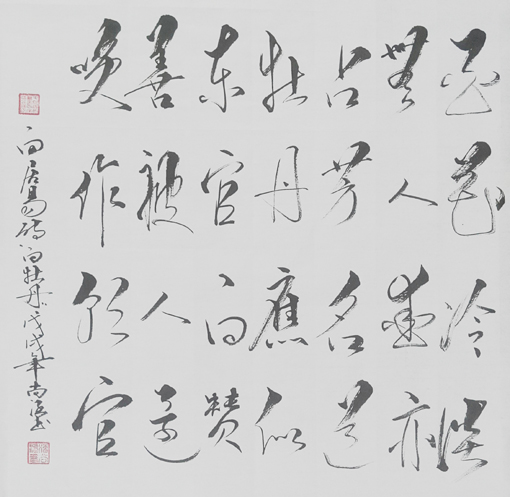 白花冷淡
無人愛亦
占芳名道
牡丹應似
東宮白贊
善被人還
喚作朝官
白居易詩白牡丹戊戌年尚書